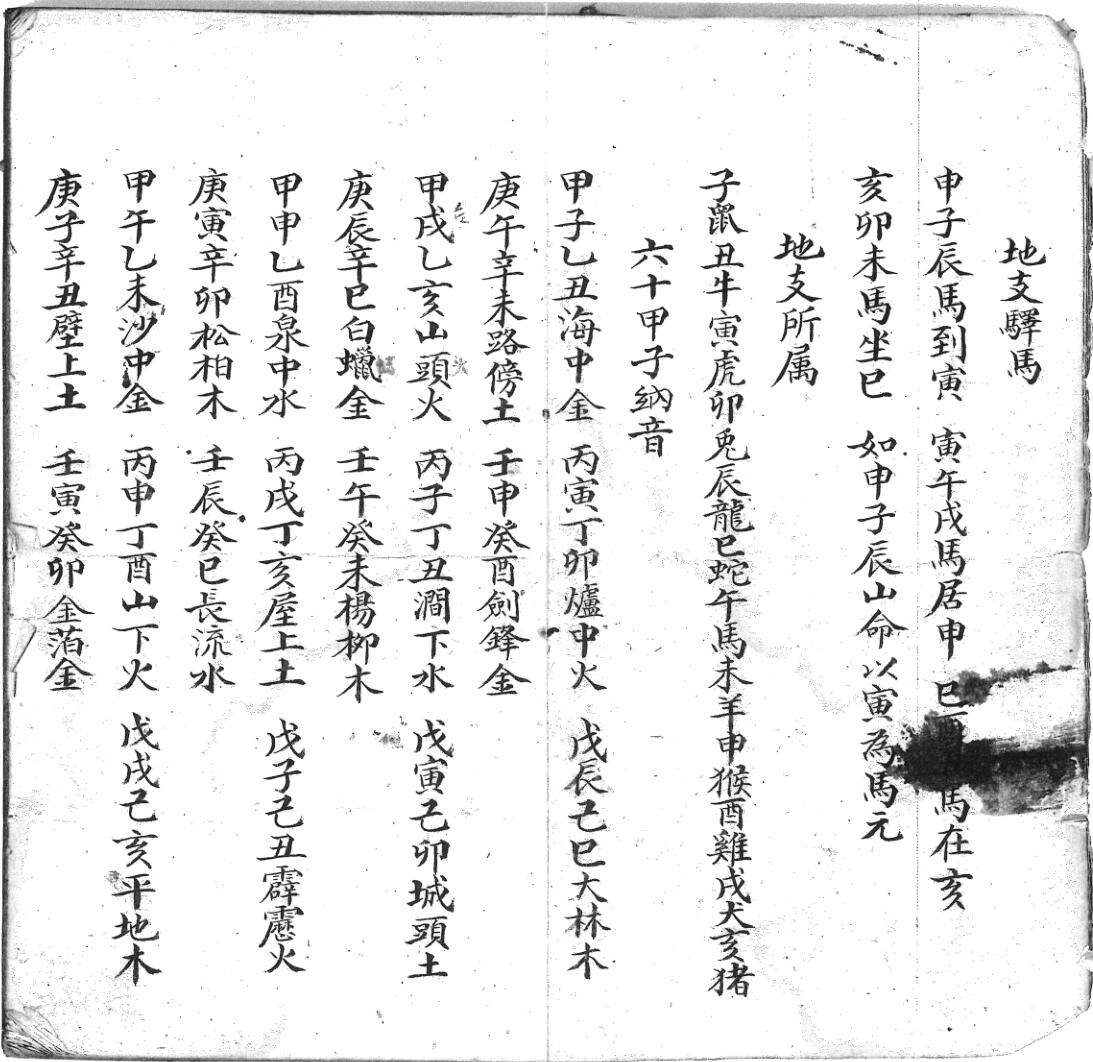 地支驛馬
申子辰馬到寅 寅午戌馬居申 巳 馬在亥
亥卯未馬坐巳 如申子辰山命以寅為馬元
地支所属
子鼠丑牛寅虎卯兎辰龍巳蛇午馬未羊申猴酉雞戌犬亥猪
六十甲子納音
甲子乙丑海中金 丙寅丁卯爐中火 戊辰己巳大林木
庚午辛未路傍土 壬申癸酉劍鋒金
甲戌乙亥山頭火 丙子丁丑澗下水 戊寅己卯城頭土
庚辰辛巳白蠟金 壬午癸未楊柳木
甲申乙酉泉中水 丙戌丁亥屋上土 戊子己丑霹靂火
庚寅辛卯松柏木 壬辰癸巳長流水
甲午乙未沙中金 丙申丁酉山下火 戊戌己亥平地木
庚子辛丑壁上土 壬寅癸卯金箔金